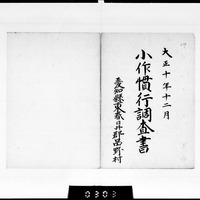 大正十年十二月
小作慣行調査書
愛知縣東春日井郡品野村
0303